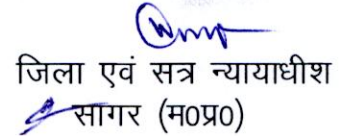 जिला एवं सत्र न्यायाधीश
सागर (म0प्र0)